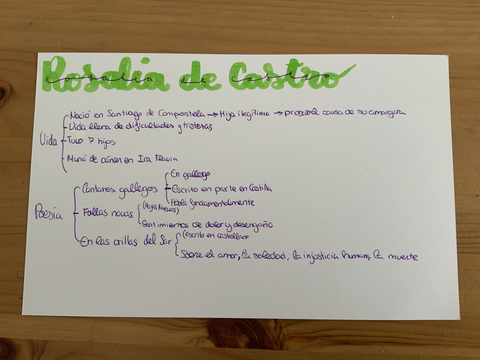 Rosalía de Castro
Nació en Santiago de Compostela → Hija ilegítima → probable causa de su amargura
Vida llena de dificultades y tristezas
Vida
Tuvo 7 hijos
Murió de cáncer en Iria Flavia
En gallego
Cantares gallegos
Escrito en parte en Castilla
Habla fundamentalmente
Poesía
Follas novas
(Hojas Nuevas)
Sentimientos de dolor y desengaño
En las orillas del Sar
(Escrito en castellano
Sobre el amor, la soledad, la injusticia humana, la muerte